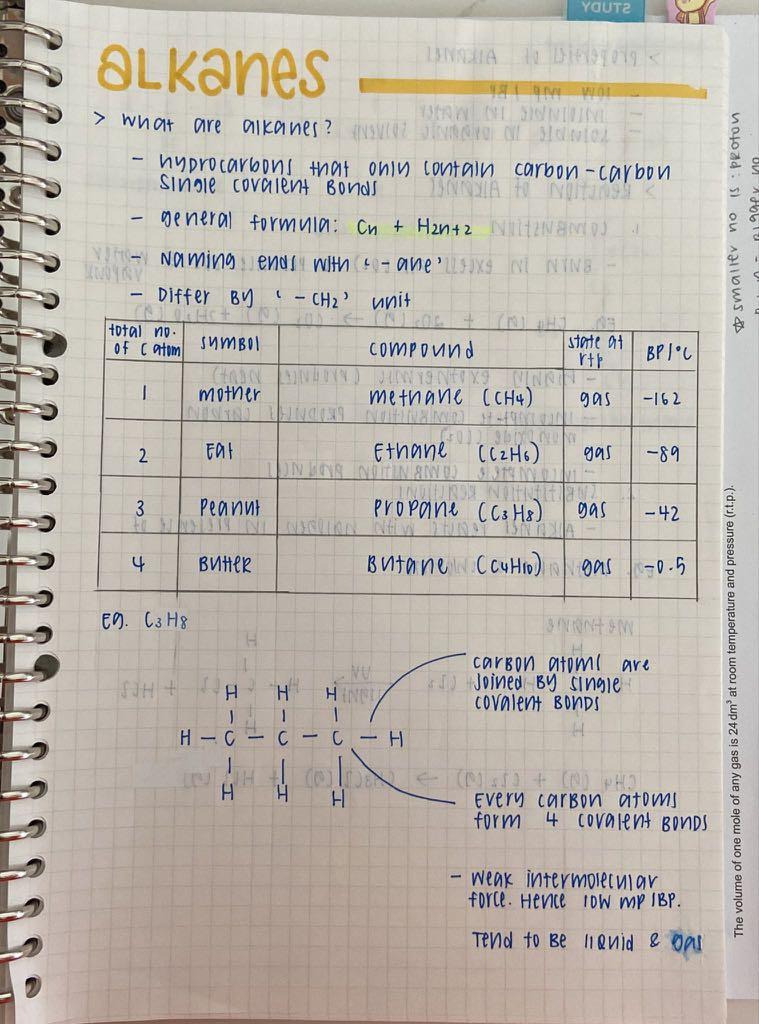 STUDY
ALKANES
> what are alkanes?
- hydrocarbons that only contain carbon-carbon
single covalent bonds
- general formula: Cn + H2n+2
- Naming ends with '-ane'
- Differ by '-CH2' unit
total no. of C atom symbol compound state at rtp BP/°C
1 mother methane (CH4) gas -162
2 Eat Ethane (C2H6) gas -89
3 Peanut Propane (C3H8) gas -42
4 Butter Butane (C4H10) gas -0.5
Eg. C3H8
carbon atoms are
joined by single
covalent bonds
H H H
H - C - C - C - H
H H H
Every carbon atoms
form 4 covalent bonds
- weak intermolecular
force. Hence low mp/BP.
Tend to be liquid & gas
☆ smaller no is : proton
The volume of one mole of any gas is 24 dm³ at room temperature and pressure (r.t.p.).